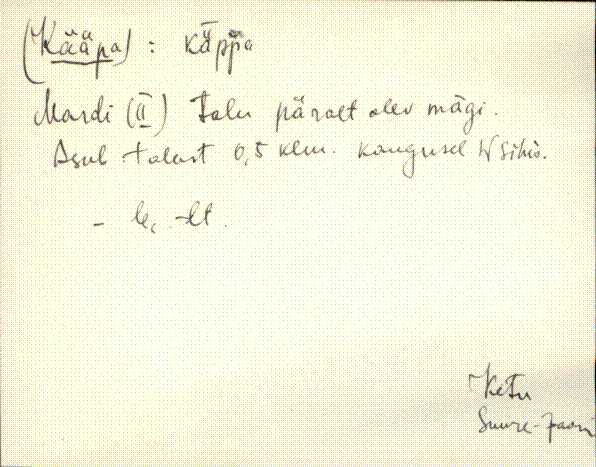 (Kääpa) : käppa
Mardi (II) talu päralt olev mägi.
Asub talust 0,5 klm. kaugusel W sihis.
Ketu
Suure-